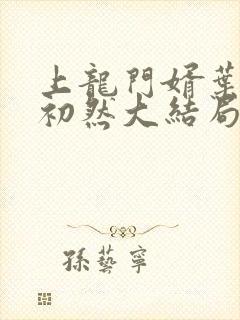 上龍門婿葉
初然大結局
孫藝寧